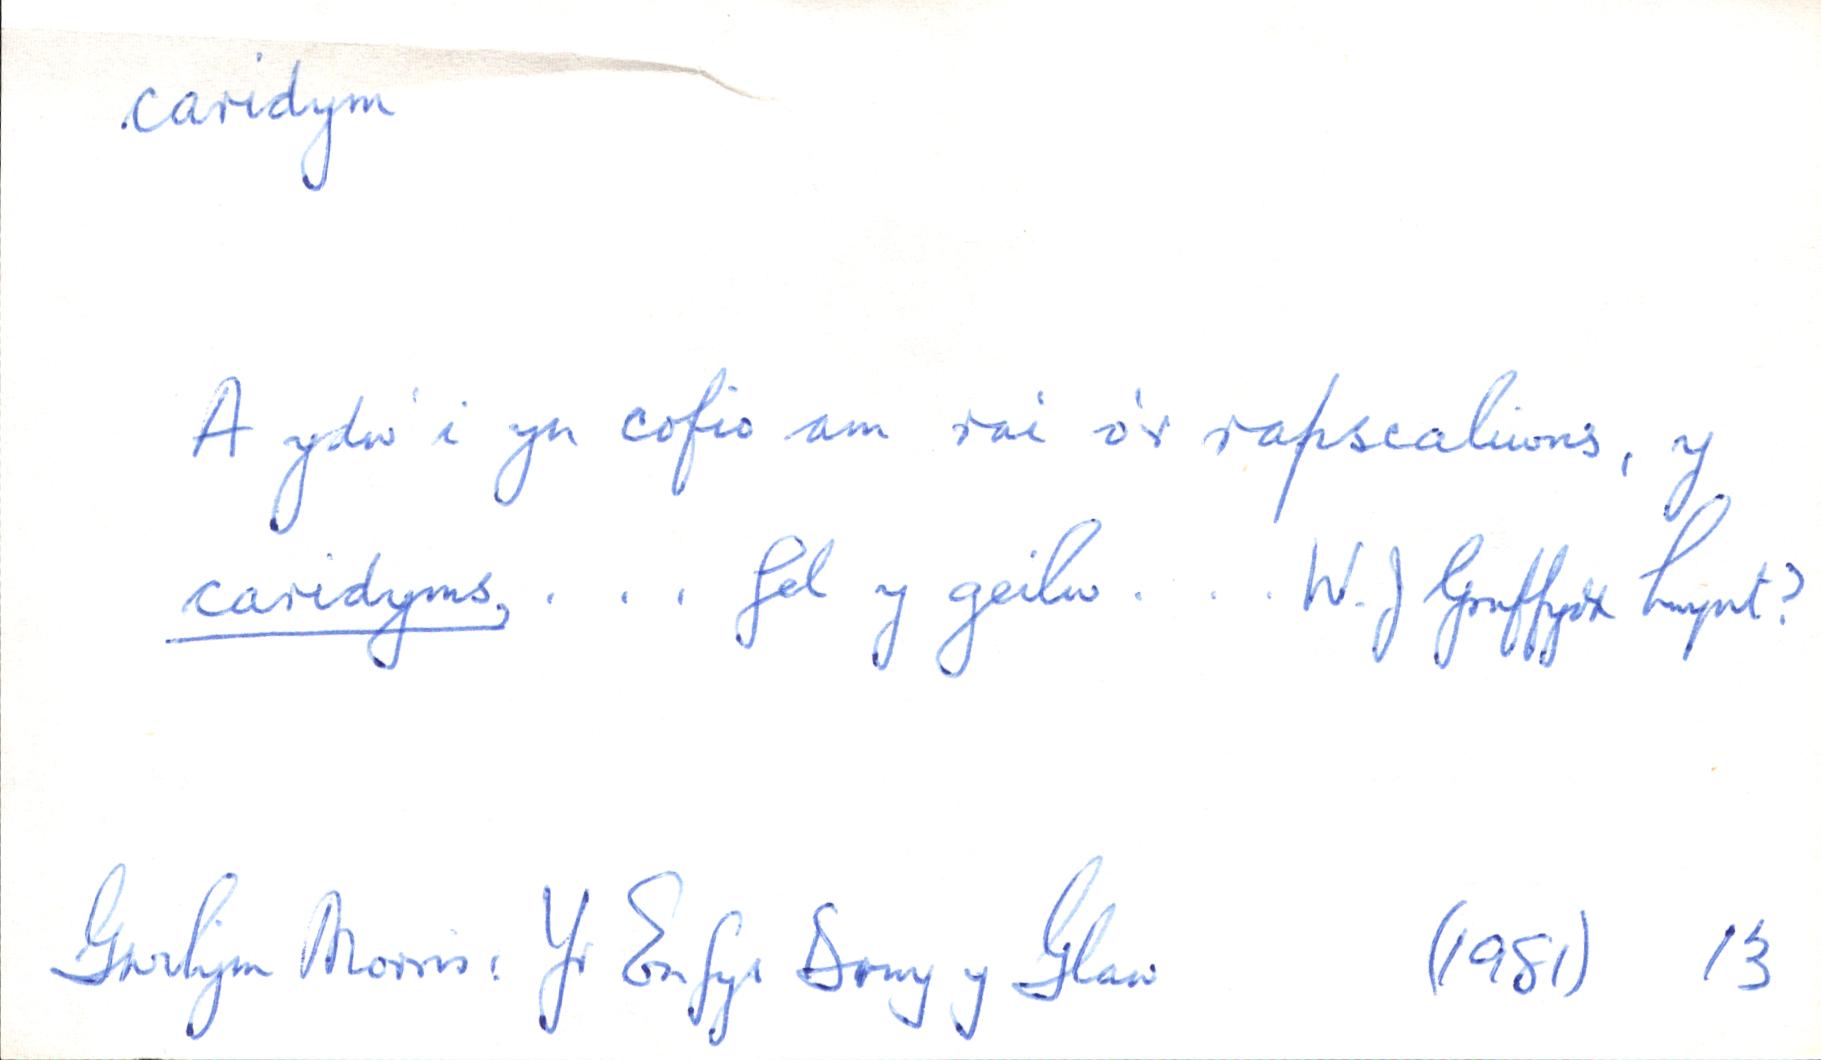 caridym
A ydw i yn cofio am rai o'r rapscaliwns, y
caridyms, . . . fel y geilw . . . W. J Gruffydd hwynt?
Gwilym Morris: Yr Enfys Drwy y Glaw (1981) 13